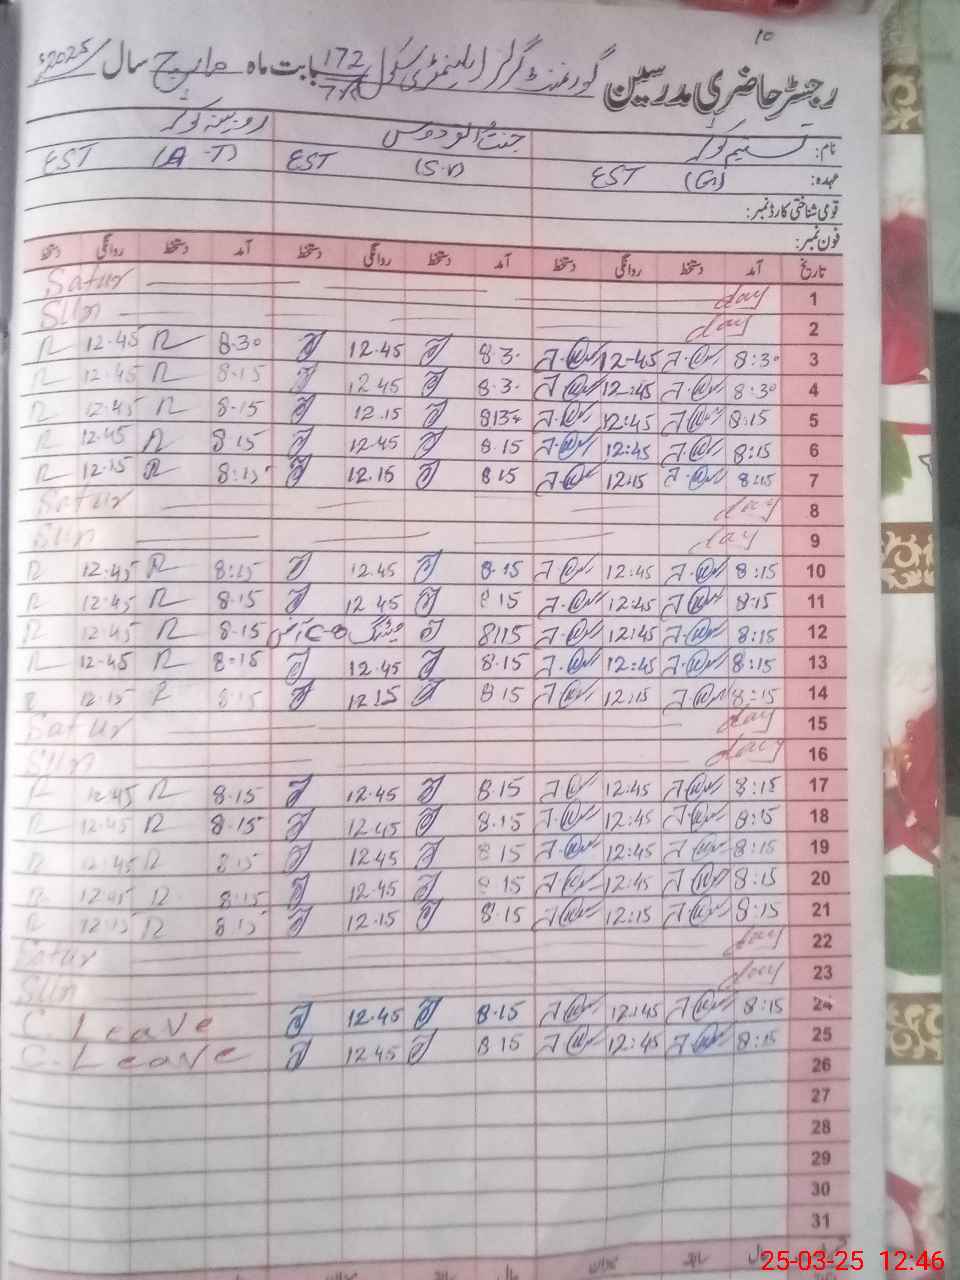 10
رجسٹر حاضری مدرسین گورنمنٹ گرلز ایلیمنٹری سکول 172 بابت ماہ مارچ سال 2025ء
نام: تسنیم کوثر جنت الفردوس روبینہ کوثر
عہدہ: EST (G) EST (S.V) EST (A-T)
قومی شناختی کارڈ نمبر:
فون نمبر:
تاریخ آمد دستخط روانگی دستخط آمد دستخط روانگی دستخط آمد دستخط روانگی دستخط
Satur day 1
Sun day 2
3 8:30 12-45 8.30 12.45 8.30 12.45
4 8:30 12:45 8.30 12.45 8.15 12.45
5 8:15 12:45 12.15 8.15 12.45
6 8:15 12:45 8.15 12.45 8.15 12.45
7 8:15 12:15 8 15 12.15 8:15 12.15
Satur day 8
Sun day 9
10 8:15 12:45 8.15 12.45 8:15 12.45
11 8:15 12:45 15 12 45 8.15 12.45
12 8:15 12:45 8:15 میٹنگ 8.15 12.45
13 8:15 12:45 8.15 12.45 8-15 12.45
14 8:15 12:15 8 15 12.15 8.15 12.15
Satur day 15
Sun day 16
17 8:15 12:45 8.15 12.45 8.15 12.45
18 8:15 12:45 8.15 12.45 8.15 12.45
19 8:15 12:45 8 15 12.45 8.15 12.45
20 8:15 12:45 8 15 12.45 8.15 12.45
21 8:15 12:15 8.15 12.15 8.15 12.15
Satur day 22
Sun day 23
24 8:15 12:45 8.15 12.45 C. Leave
25 8:15 12:45 8 15 12.45 C. Leave
26
27
28
29
30
31
25-03-25 12:46